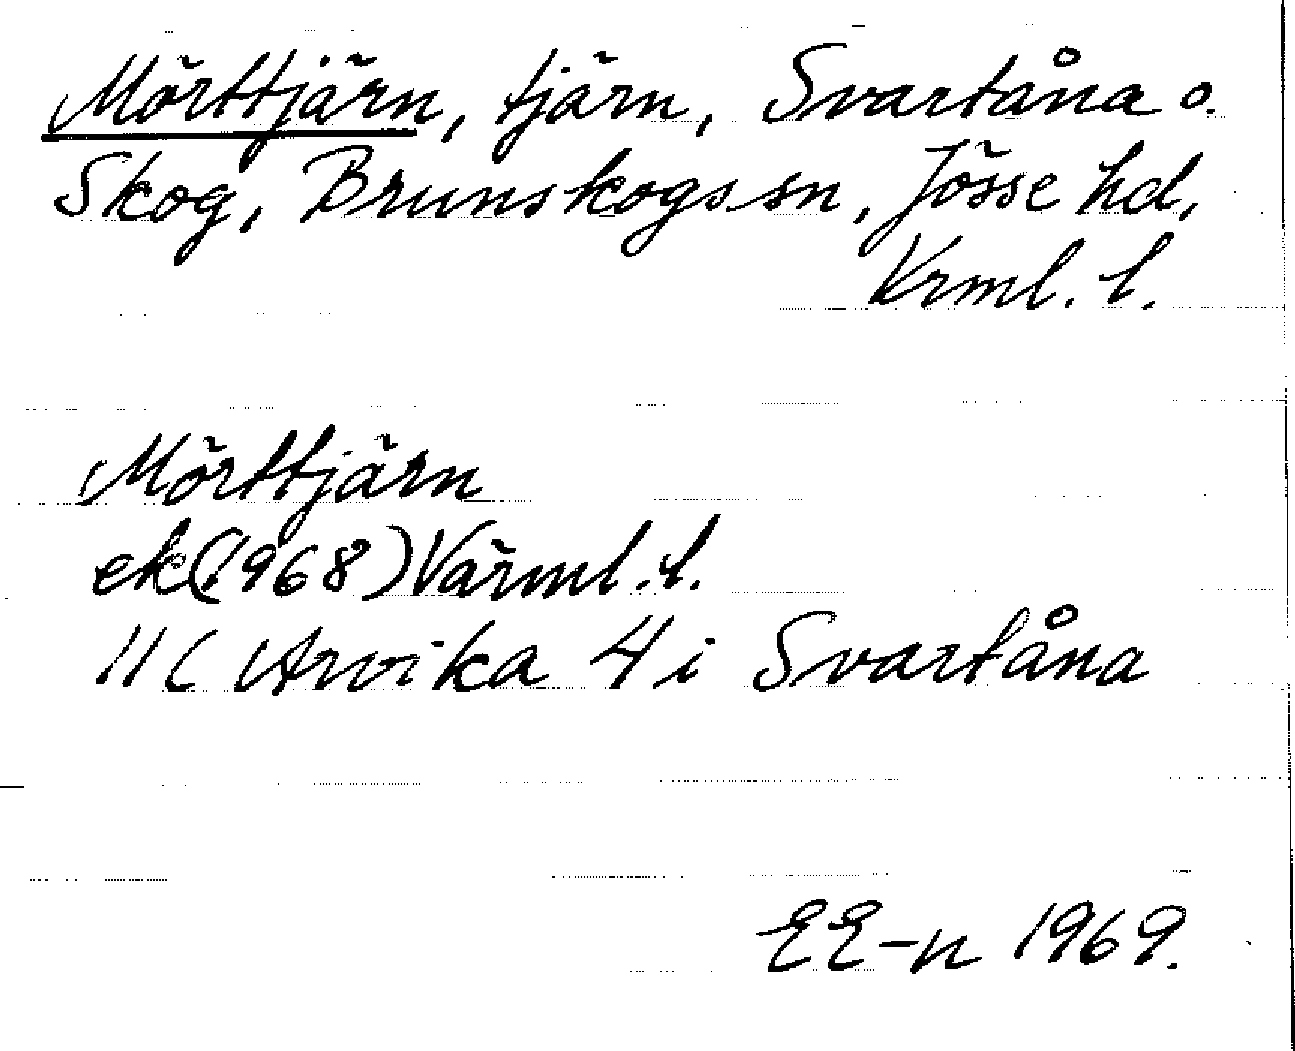 Mörttjärn, tjärn, Svartåna o.
Skog, Brunskogs sn, Jösse hd,
Vrml. l.
Mörttjärn
ek (1968) Värml. l.
11 C Arvika 4 i Svartåna
EE-n 1969.